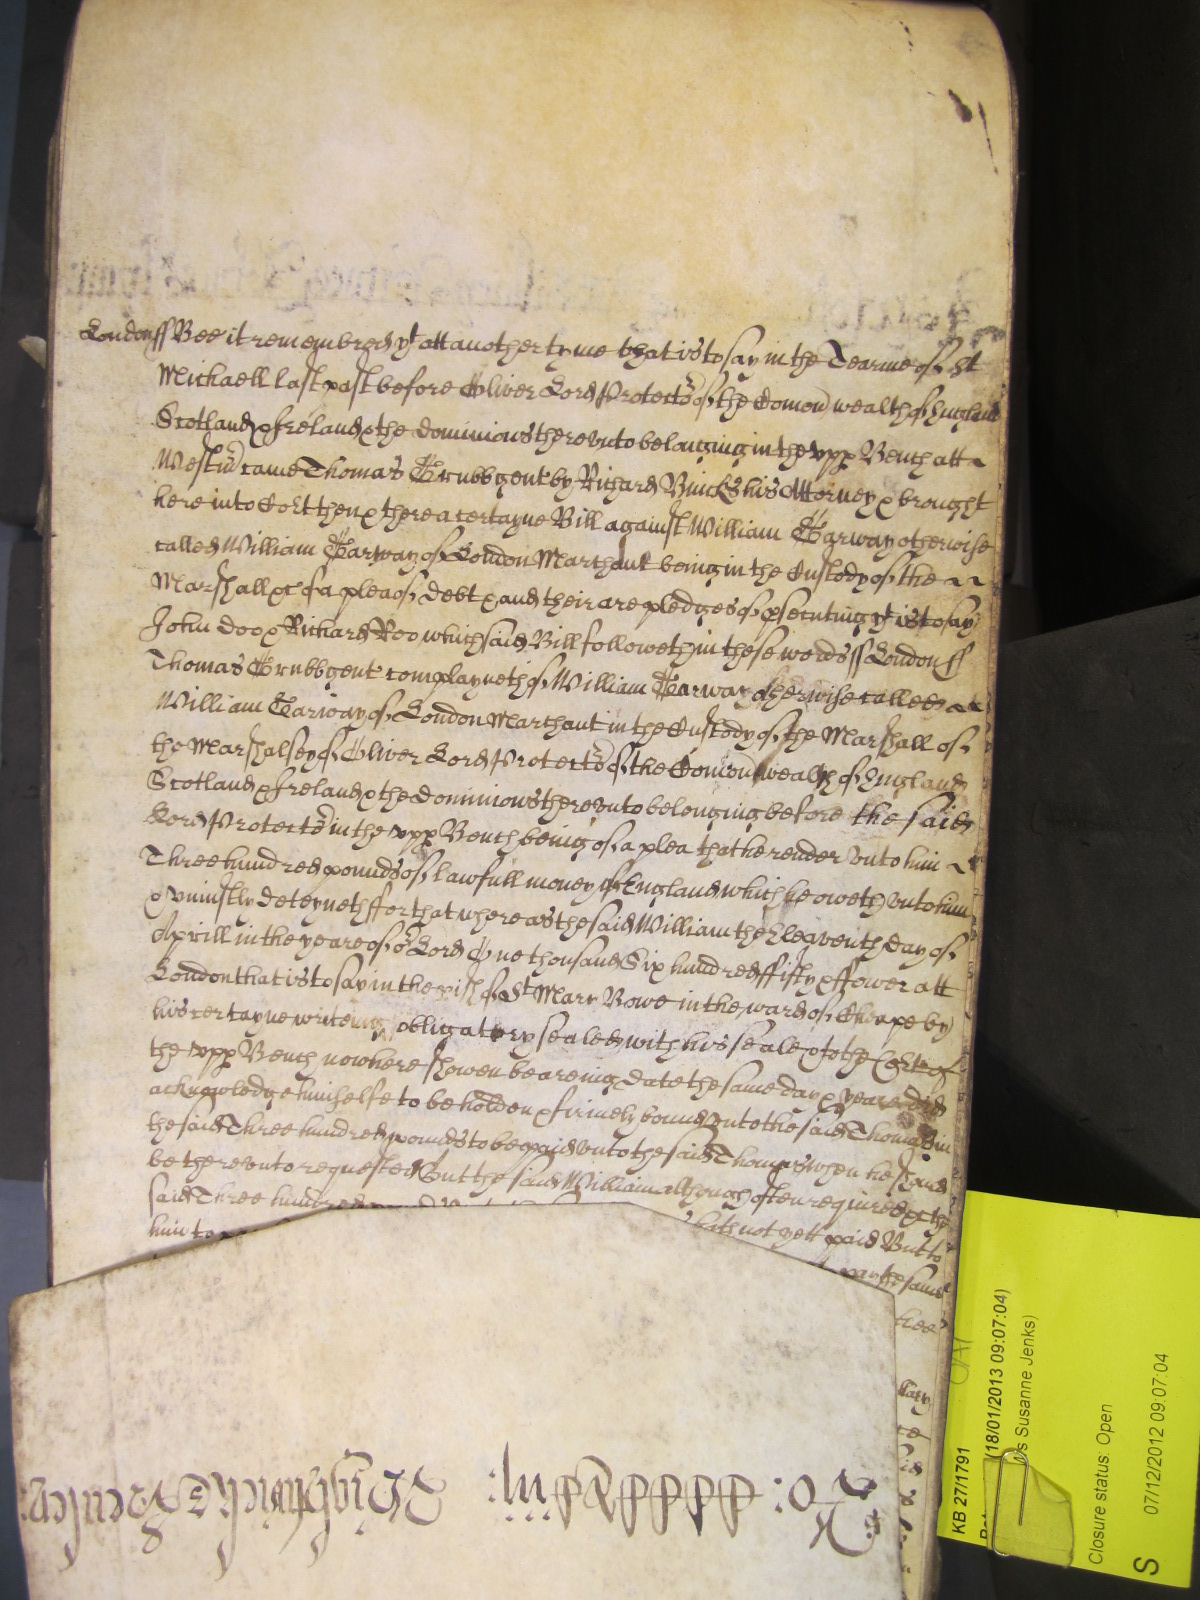 London ss Bee it remembred yt att another tyme that is to say in the Tearme of St
Michaell last past before Oliver Lord Protector of the Comon wealth of England
Scotland & Ireland & the dominions thereunto belonging in the upp Bench att
Westm came Thomas Grubb gent by Richard his Attorney & brought
here into Cort then & there a certayne Bill against William Garway otherwise
called William Garway of London Marchant being in the Custody of the
Marshall &c of a plea of debt & and their are pledges of psecuting yt is to say
John Doo & Richard Roo which said Bill followeth in these words ss London ss
Thomas Grubb gent complayneth of William Garway otherwise called
William Garway of London Marchant in the Custody of the Marshall of
the Marshalsey of Oliver Lord Protector of the Comon wealth of England
Scotland & Ireland & the dominions thereunto belonging before the said
Lord Protector in the upp Bench being of a plea that he render unto him
Three hundred pounds of lawfull money of England which he oweth unto him
& uniustly deteyneth ffor that whereas the said William the Eleaventh day of
Aprill in the yeare of or Lord One thousand Six hundred ffifty & ffower att
London that is to say in the pish of St Mary Bowe in the ward of Cheape by
his certayne writeing obligatory sealed with his seale & to the Cort of
the upp Bench now here shewen beareing date the same day & yeare did
acknowledge himselfe to be holden & firmely bound unto the said Thomas in
the said Three hundred pounds to be paid unto the said Thomas when he should
be thereunto requested But the said William although often required &c the
said Three hundred hath not yett paid But to
him to pay the same
KB 27/1791
(18/01/2013 09:07:04)
s Susanne Jenks)
Closure status: Open
S 07/12/2012 09:07:04